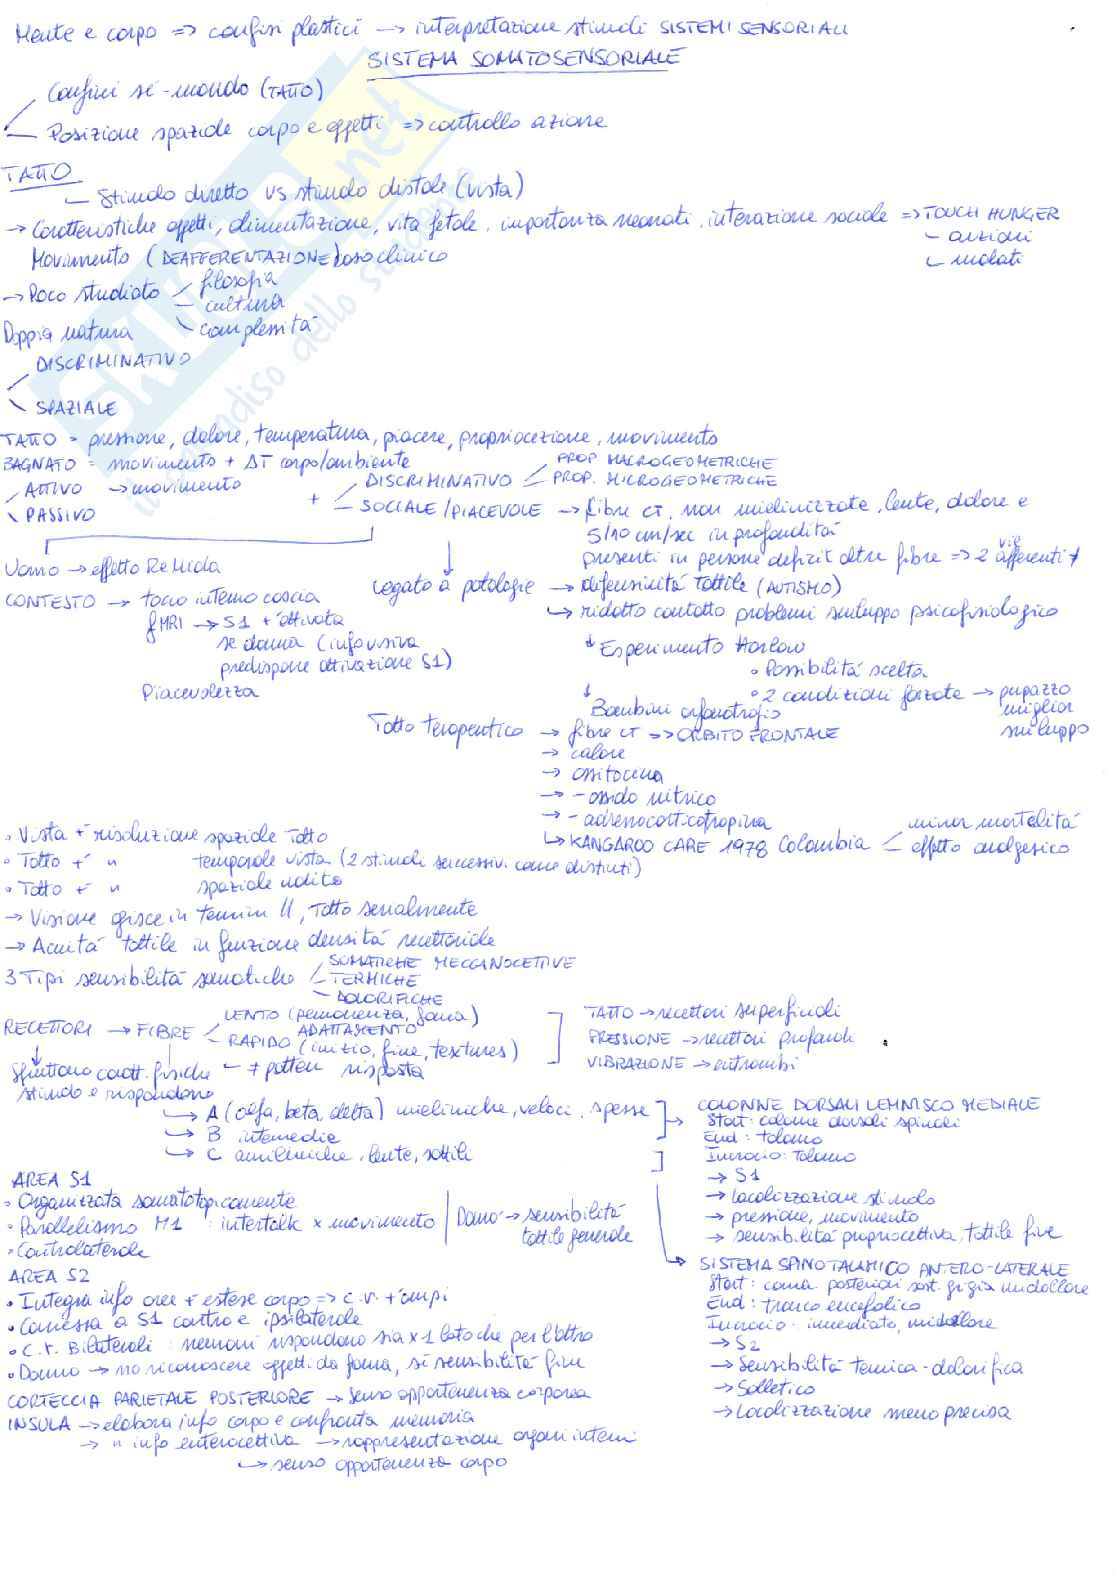 Mente e corpo => confini plastici -> interpretazione stimoli SISTEMI SENSORIALI
SISTEMA SOMATOSENSORIALE
Confini sé-mondo (TATTO)
Posizione spaziale corpo e oggetti => controllo azione
TATTO
Stimolo diretto VS stimolo distale (vista)
-> Caratteristiche oggetti, alimentazione, vita fetale, importanza neonati, interazione sociale => TOUCH HUNGER
- anziani
- malati
Movimento (DEAFFERENTAZIONE) caso clinico
-> Poco studiato
filosofia
cultura
complessità
Doppia natura
DISCRIMINATIVO
SPAZIALE
TATTO = pressione, dolore, temperatura, piacere, propriocezione, movimento
BAGNATO = movimento + ΔT corpo/ambiente
ATTIVO -> movimento
PASSIVO
+ DISCRIMINATIVO
PROP MACROGEOMETRICHE
PROP. MICROGEOMETRICHE
SOCIALE/PIACEVOLE -> fibre CT, non mielinizzate, lente, dolore e
5/10 cm/sec in profondità
presenti in persone deficit altre fibre => 2 vie afferenti ≠
Uomo -> effetto Re Mida
CONTESTO -> tocco interno coscia
fMRI -> S1 + attivata
se donna (info visiva
predispone attivazione S1)
Piacevolezza
Legato a patologie -> difensività tattile (AUTISMO)
-> ridotto contatto problemi sviluppo psicofisiologico
Esperimento Harlow
• Possibilità scelta
• 2 condizioni forzate -> pupazzo
miglior
sviluppo
Bambini orfanotrofio
Tatto terapeutico -> fibre CT => ORBITO FRONTALE
-> calore
-> ossitocina
-> - ossido nitrico
-> - adrenocorticotropina
-> KANGAROO CARE 1978 Colombia
minor mortalità
effetto analgesico
• Vista + risoluzione spaziale tatto
• Tatto + " temporale vista (2 stimoli successivi come distinti)
• Tatto + " spaziale udito
-> Visione agisce in termini //, Tatto serialmente
-> Acuità tattile in funzione densità recettoriale
3 Tipi sensibilità somatiche
SOMATICHE MECCANOCETTIVE
TERMICHE
DOLORIFICHE
RECETTORI -> FIBRE
LENTO (permanenza, forma)
ADATTAMENTO
RAPIDO (inizio, fine, textures)
≠ pattern risposta
Sfruttano caratt. fisiche
stimolo e rispondono
TATTO -> recettori superficiali
PRESSIONE -> recettori profondi
VIBRAZIONE -> entrambi
-> A (alfa, beta, delta) mieliniche, veloci, spesse
-> B intermedie
-> C amieliniche, lente, sottili
COLONNE DORSALI LEMNISCO MEDIALE
Start: colonne dorsali spinali
End: talamo
Incrocio: Talamo
-> S1
-> localizzazione stimolo
-> pressione, movimento
-> sensibilità propriocettiva, tattile fine
AREA S1
• Organizzata somatotopicamente
• Parallelismo M1 : intertalk x movimento
• Controlaterale
Danno -> sensibilità
tattile generale
SISTEMA SPINOTALAMICO ANTERO-LATERALE
Start: corna posteriori sost. grigia midollare
End: tronco encefalico
Incrocio: immediato, midollare
-> S2
-> Sensibilità termica-dolorifica
-> Solletico
-> Localizzazione meno precisa
AREA S2
• Integra info aree + estese corpo => C.r. + ampi
• Connessa a S1 contro e ipsilaterale
• C.r. Bilaterali : neuroni rispondono sia x 1 lato che per l'altro
• Danno -> no riconoscere oggetti da forma, sì sensibilità fine
CORTECCIA PARIETALE POSTERIORE -> senso appartenenza corporea
INSULA -> elabora info corpo e confronta memoria
-> " info enterocettiva -> rappresentazione organi interni
-> senso appartenenza corpo